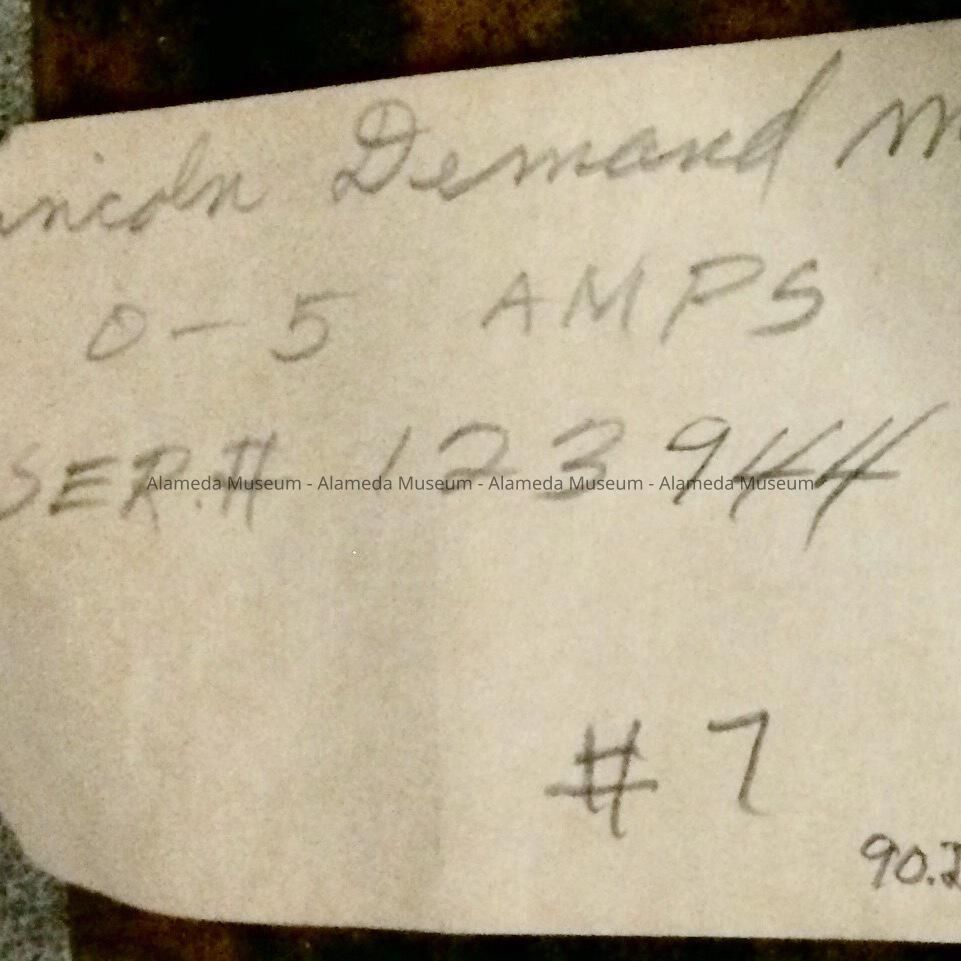 incoln Demand M
0-5 AMPS
SER.# 123944
Alameda Museum - Alameda Museum - Alameda Museum - Alameda Museum
#7
90.